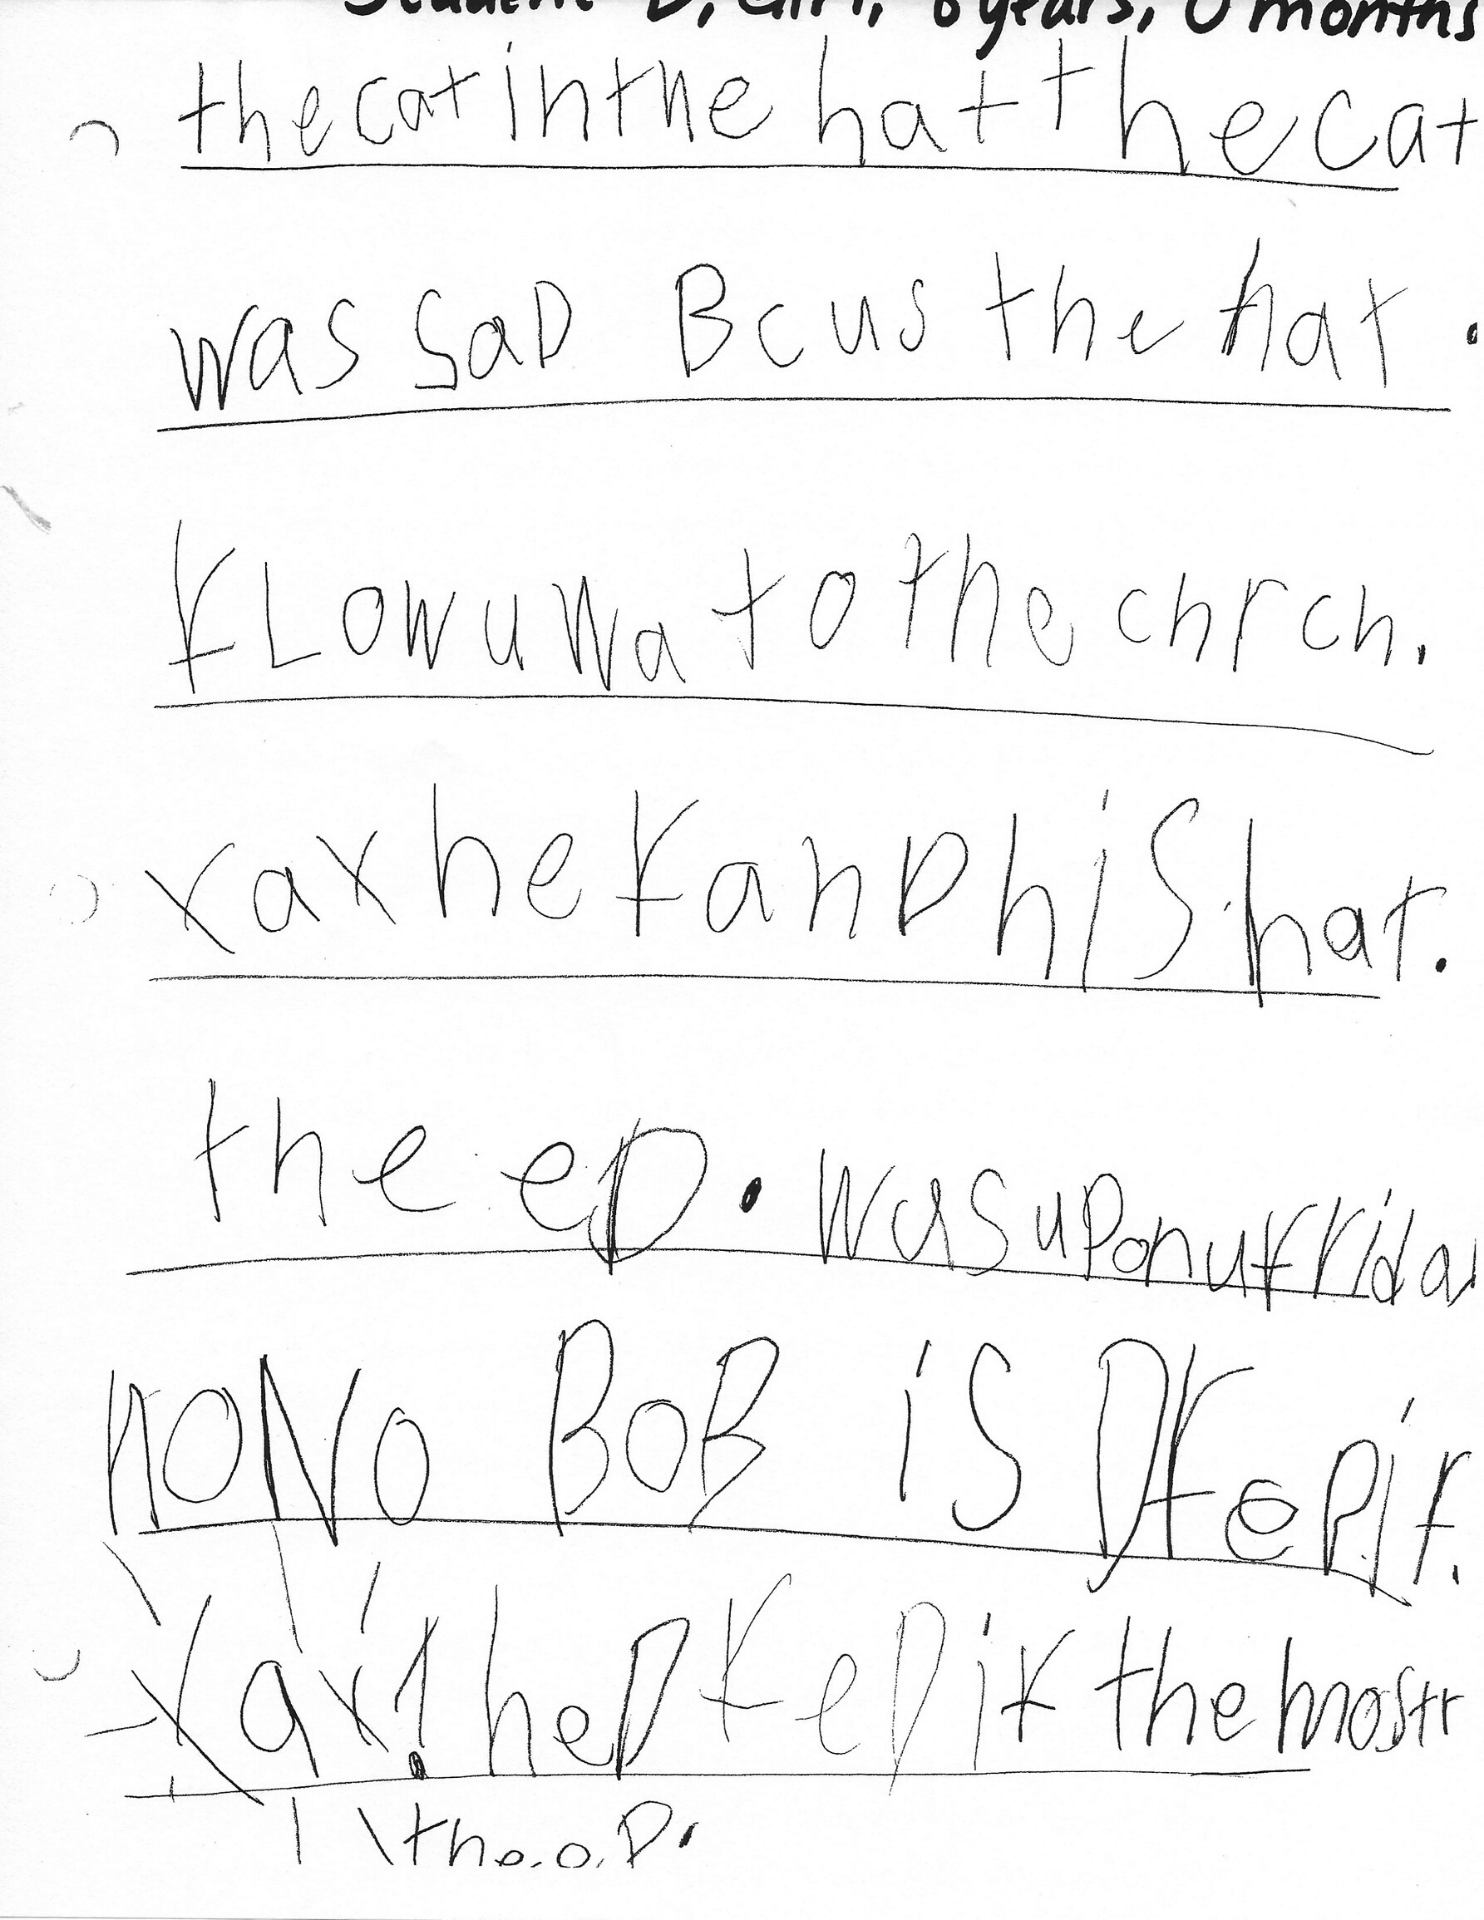 Student D, Girl, 6 years, 0 months
thecatinthe hatthecat
was saD Bcus the hat.
fLowuwa to the chrch.
xaxhefanDhishat.
the eD. wasuponufrida
noNo BoB is Dfepit.
xax! heD fepit themostr
the.e.D.